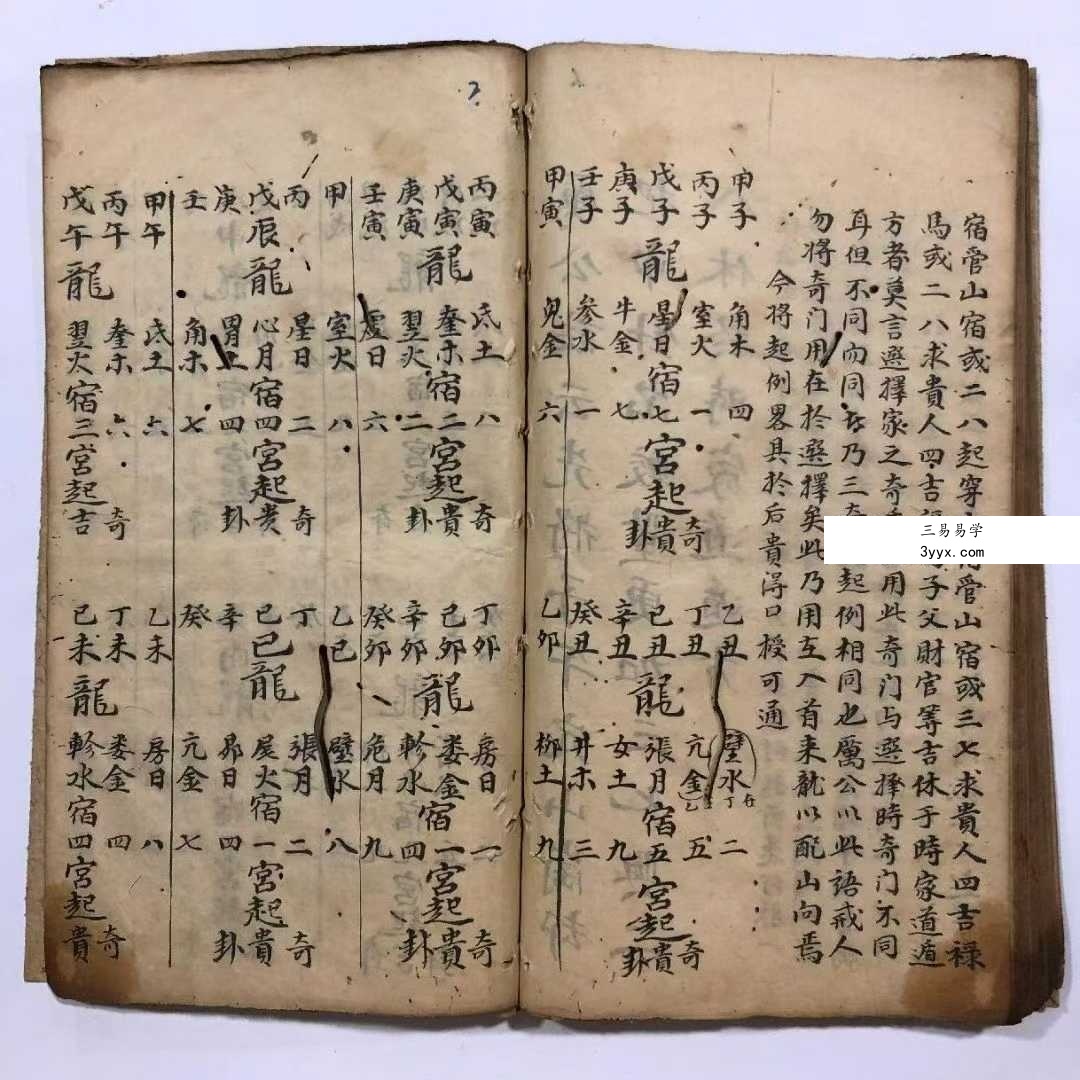 宿管山宿或二八起穿 管山宿或三七求貴人四吉祿
馬或二八求貴人四吉 子父財官等吉休于時家道遁
方者莫言選擇家之奇 用此奇门与選擇時奇门不同
耳但不同而同者乃三奇 起例相同也厲公以此語戒人
勿将奇门用在於選擇矣此乃用互入首来龍以配山向焉
今将起例畧具於后貴得口授可通
甲子 角木 四 乙丑 璧水 二
丙子 室火 一 奇 丁丑 亢金 五 奇
戊子 龍 星日 宿 七 宮起貴 己丑 龍 張月 宿 五 宮起貴
庚子 牛金 七 卦 辛丑 女土 九 卦
壬子 参水 一 癸丑 井木 三
甲寅 鬼金 六 乙卯 柳土 九
丙寅 氐土 八 奇 丁卯 房日 一 奇
戊寅 龍 奎木 宿 二 宮起貴 己卯 龍 娄金 宿 一 宮起貴
庚寅 翌火 二 卦 辛卯 軫水 四 卦
壬寅 虚日 六 癸卯 危月 九
甲 室火 八 乙巳 璧水 八
丙 星日 二 奇 丁 張月 二 奇
戊辰 龍 心月 宿 四 宮起贵 己巳 龍 尾火 宿 一 宮起貴
庚 胃土 四 卦 辛 昴日 四 卦
壬 角木 七 癸 亢金 七
甲午 氐土 六 乙未 房日 八
丙午 奎木 六 奇 丁未 娄金 四 奇
戊午 龍 翌火 宿 三 宮起吉 己未 龍 軫水 宿 四 宮起貴
三易易学
3yyx.com